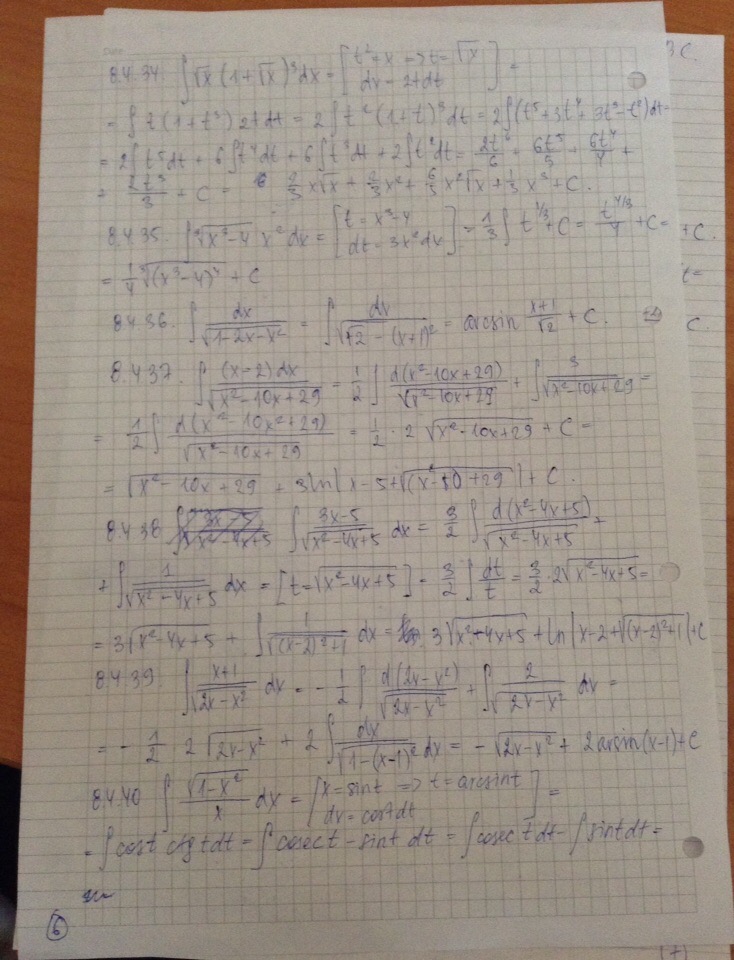 8.4.34. ∫√x (1+√x)³dx = [t²=x → t=√x
dx=2tdt] =
= ∫t(1+t³)2tdt = 2∫t²(1+t)³dt = 2∫(t⁵+3t⁴+3t³-t²)dt=
= 2∫t⁵dt + 6∫t⁴dt + 6∫t³dt + 2∫t²dt = 2t⁶/6 + 6t⁵/5 + 6t⁴/4 +
= 2t³/3 + C = x√x + x² + x²√x + 1/3 x³ + C.
8.4.35. ∫∛(x³-4) x²dx = [t=x³-4
dt=3x²dx] = 1/3 ∫t^(1/3) + C = t^(4/3)/4 + C =
= 1/4 ∛((x³-4)⁴) + C
8.4.36. ∫dx/√(1-2x-x²) = ∫dx/√(√2-(x+1)²) = arcsin (x+1)/√2 + C.
8.4.37. ∫(x-2)dx/√(x²-10x+29) = 1/2 ∫d(x²-10x+29)/√(x²-10x+29) + ∫3/√(x²-10x+29) =
= 1/2 ∫d(x²-10x²+29)/√(x²-10x+29) = 1/2 · 2√(x²-10x+29) + C =
= √(x²-10x+29) + 3ln|x-5+√(x²-10+29)| + C.
8.4.38 ∫(3x-5)/√(x²-4x+5) dx = 3/2 ∫d(x²-4x+5)/√(x²-4x+5) +
+ ∫1/√(x²-4x+5) dx = [t=√(x²-4x+5)] = 3/2 ∫dt/t = 3/2 · 2√(x²-4x+5) =
= 3√(x²-4x+5) + ∫1/√((x-2)²+1) dx = 3√(x²-4x+5) + ln|x-2+√((x-2)²+1)|+C
8.4.39. ∫(x+1)/√(2x-x²) dx = -1/2 ∫d(2x-x²)/√(2x-x²) + ∫2/√(2x-x²) dx =
= -1/2 2√(2x-x²) + 2∫dx/√(1-(x-1)²) dx = -√(2x-x²) + 2arcsin(x-1)+C
8.4.40 ∫√(1-x²)/x dx = [x=sint => t=arcsint
dx=costdt] =
= ∫cost ctgtdt = ∫cosect-sint dt = ∫cosectdt - ∫sintdt =
6